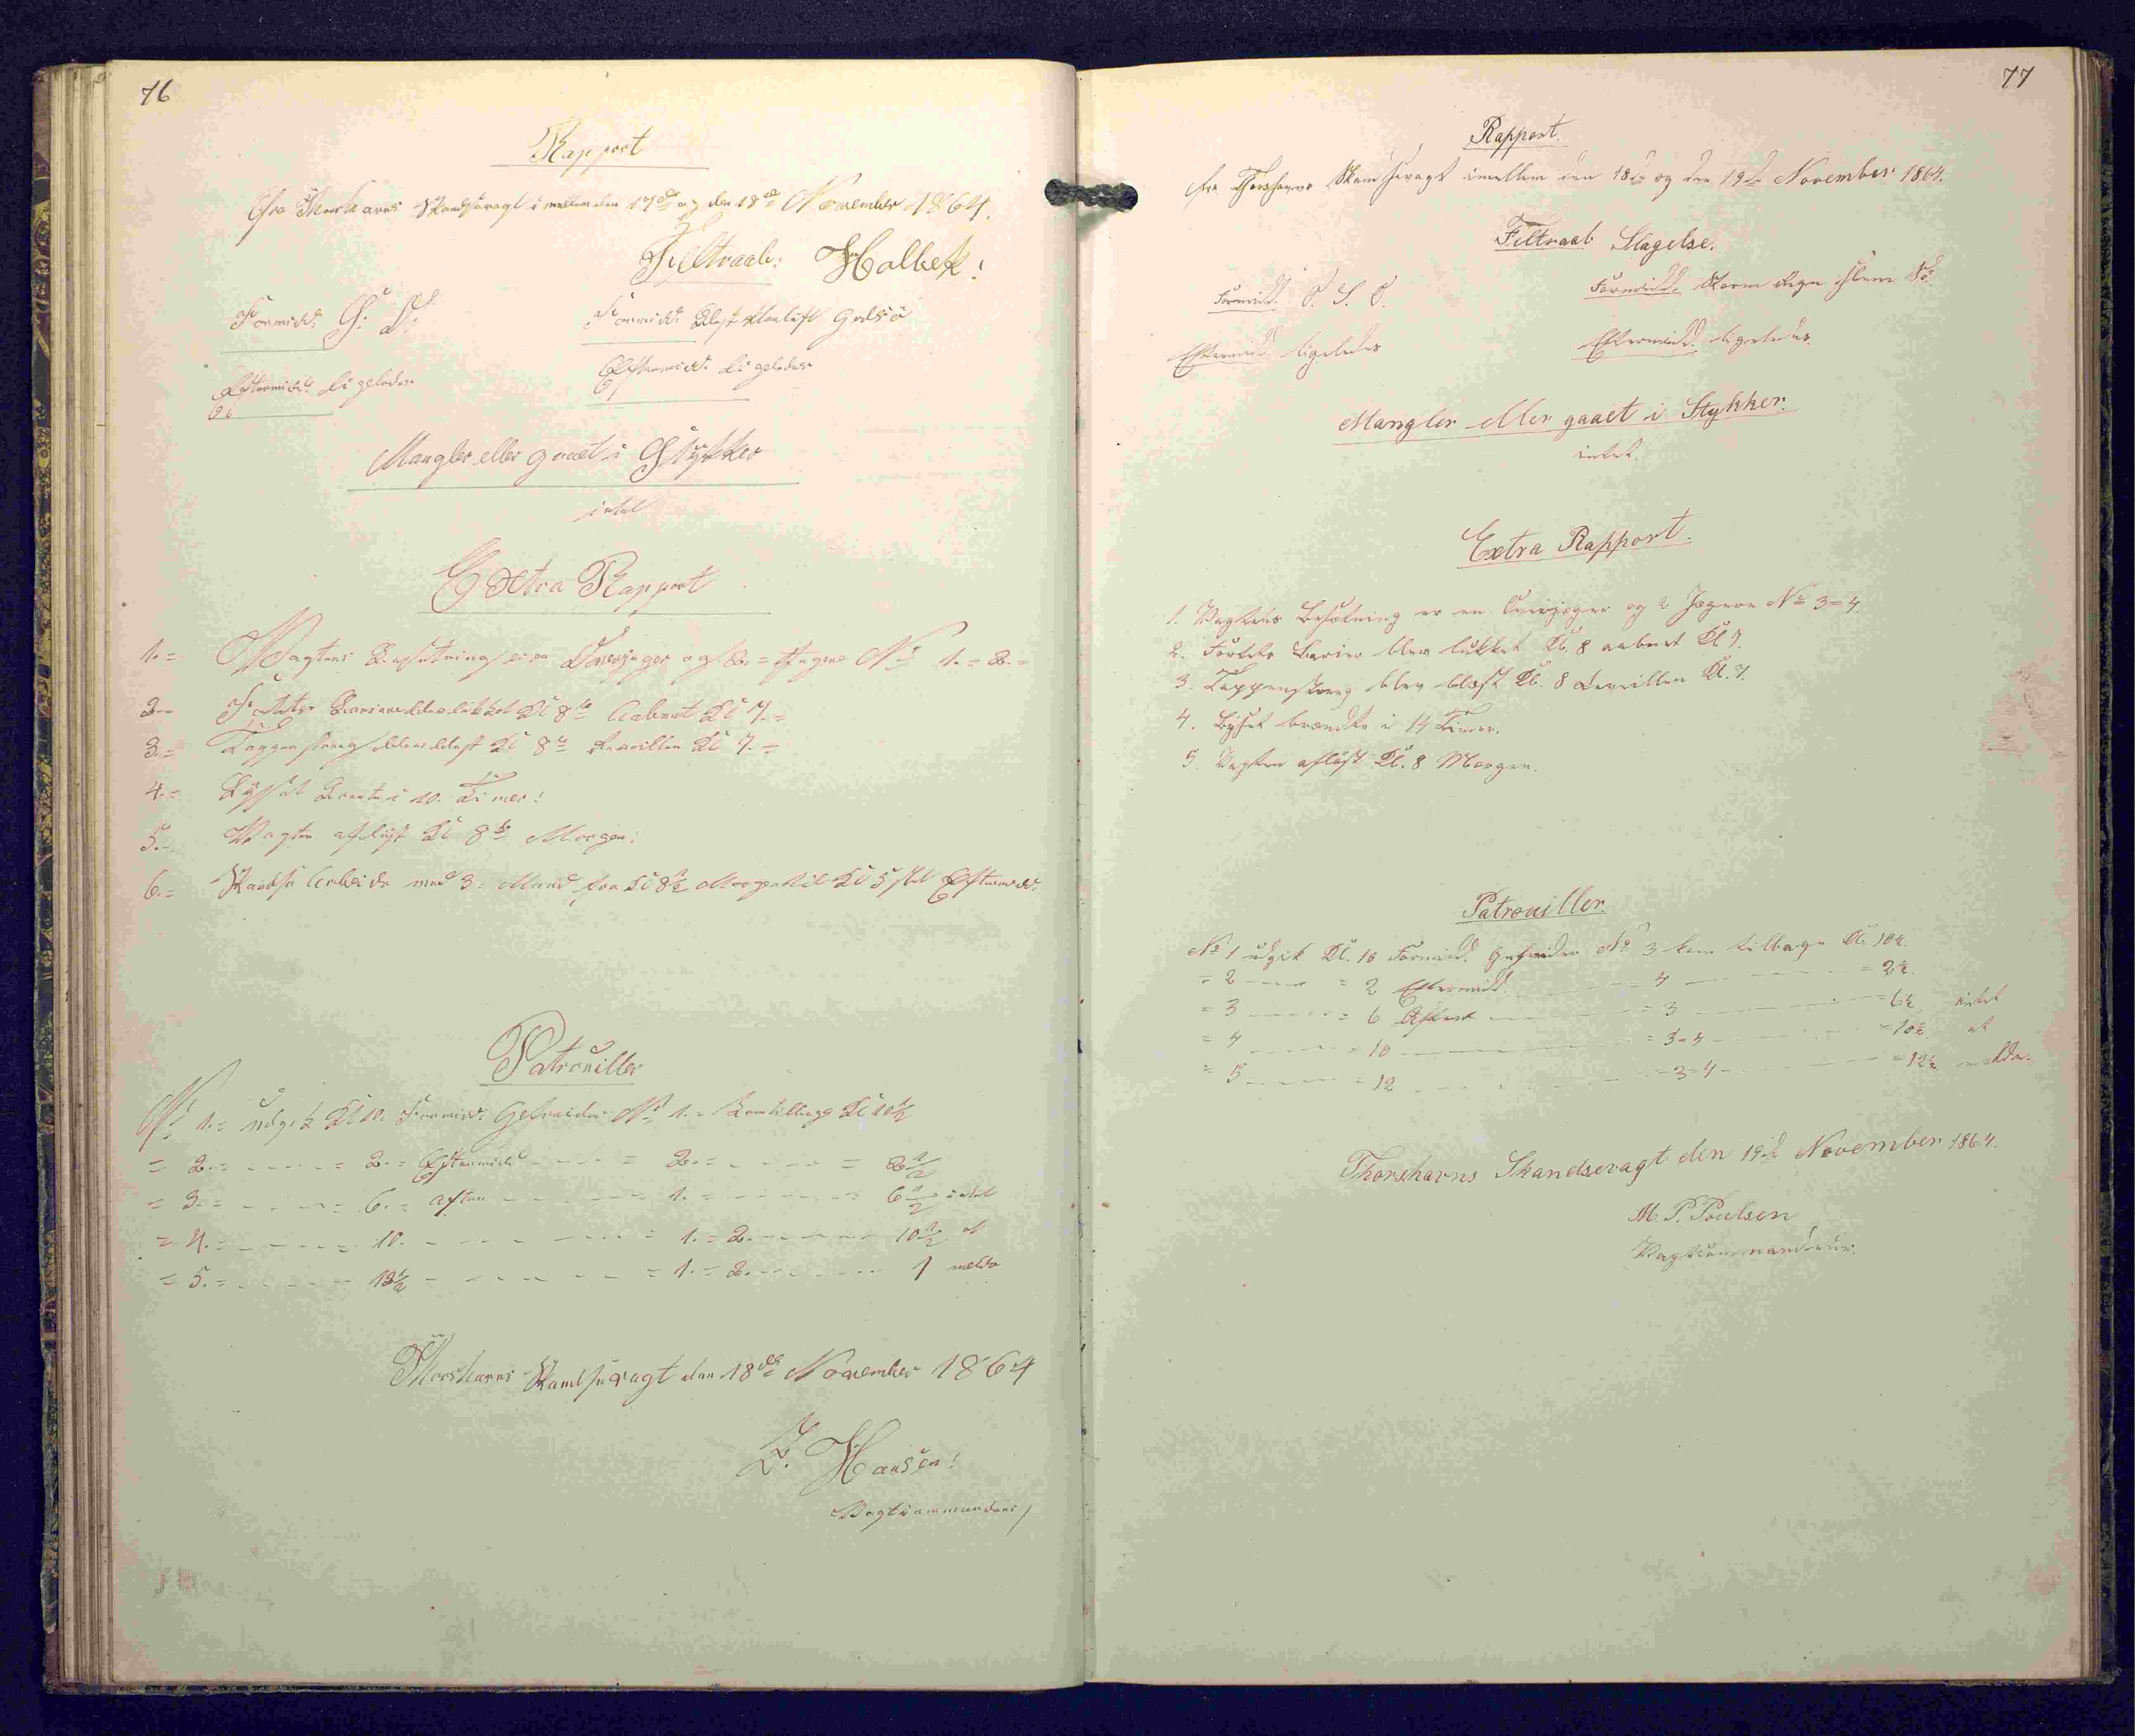 76
Rapport
fra Thorshavns Skandsevagt imellem den 17de og den 18de November 1864.
Feltraab: Holbek!
Formidd:
Formidd:
Eftermidd: Ligeledes
Eftermidd: Ligeledes
Mangler eller gaaet i Stykker
intet
Extra Rapport
1.= Vagtens Besætning er en Overjæger og 2.= Jægere No 1.=2.=
2.= Fortets Bariere blev lukket Kl 8te Aabnet Kl 7.=
3.= Tappenstreg blev blæst Kl 8te Revillen Kl 7.=
4.= Lyset Brænte i 10. Timer!
5.= Vagten afløst Kl 8te Morgen!
6.= Skandse Arbeide med 3= Mand fra Kl 8½ Morgen til Kl 5 Eftermidd:
Patrouiller
No 1.= udgik Kl 10. Formidd: Gefreider No 1.= kom tilbage Kl 10½
= 2.= - - - - = 2.= Eftermidd - - - = 2.= - - - - = 2½
= 3.= - - - - = 6.= aften - - - - 1.= - - - - 6½ intet
= 4.= - - - - 10. - - - - = 1.=2. - - - - 10½ at
= 5.= - - - - 12½ - - - - = 1.=2. - - - - 1 melde
Thorshavns Skandsevagt den 18de November 1864
Hansen!
Vagtcommandeur
77
Rapport.
fra Thorshavns Skandsevagt imellem den 18de og den 19de November 1864.
Feltraab Slagelse.
Formidd. S.
Formidd. Storm Regn
Eftermidd. ligeledes
Eftermidd. ligeledes.
Mangler eller gaaet i Stykker.
intet.
Extra Rapport.
1. Vagtens Besætning er en Overjæger og 2 Jægere No 3=4.
2. Fortets Barier blev lukket Kl. 8 aabnet Kl 7.
3. Tappenstreg blev blæst Kl. 8 Reveillen Kl. 7.
4. Lyset brændte i 14 Timer.
5. Vagten afløst Kl. 8 Morgen.
Patrouiller.
No 1 udgik Kl. 10 Formidd. Gefreider No 3 kom tilbage Kl. 10½.
= 2 - - - = 2 Eftermidd. - - - = 4 - - - = 2½.
= 3 - - - = 6 Aften - - - = 3 - - - = 6½ intet
= 4 - - - = 10 - - - = 3=4 - - - = 10½ at
= 5 - - - = 12 - - - = 3=4 - - - = 12½ melde.
Thorshavns Skandsevagt den 19de November 1864.
M. P. Poulsen
Vagtcommandeur.